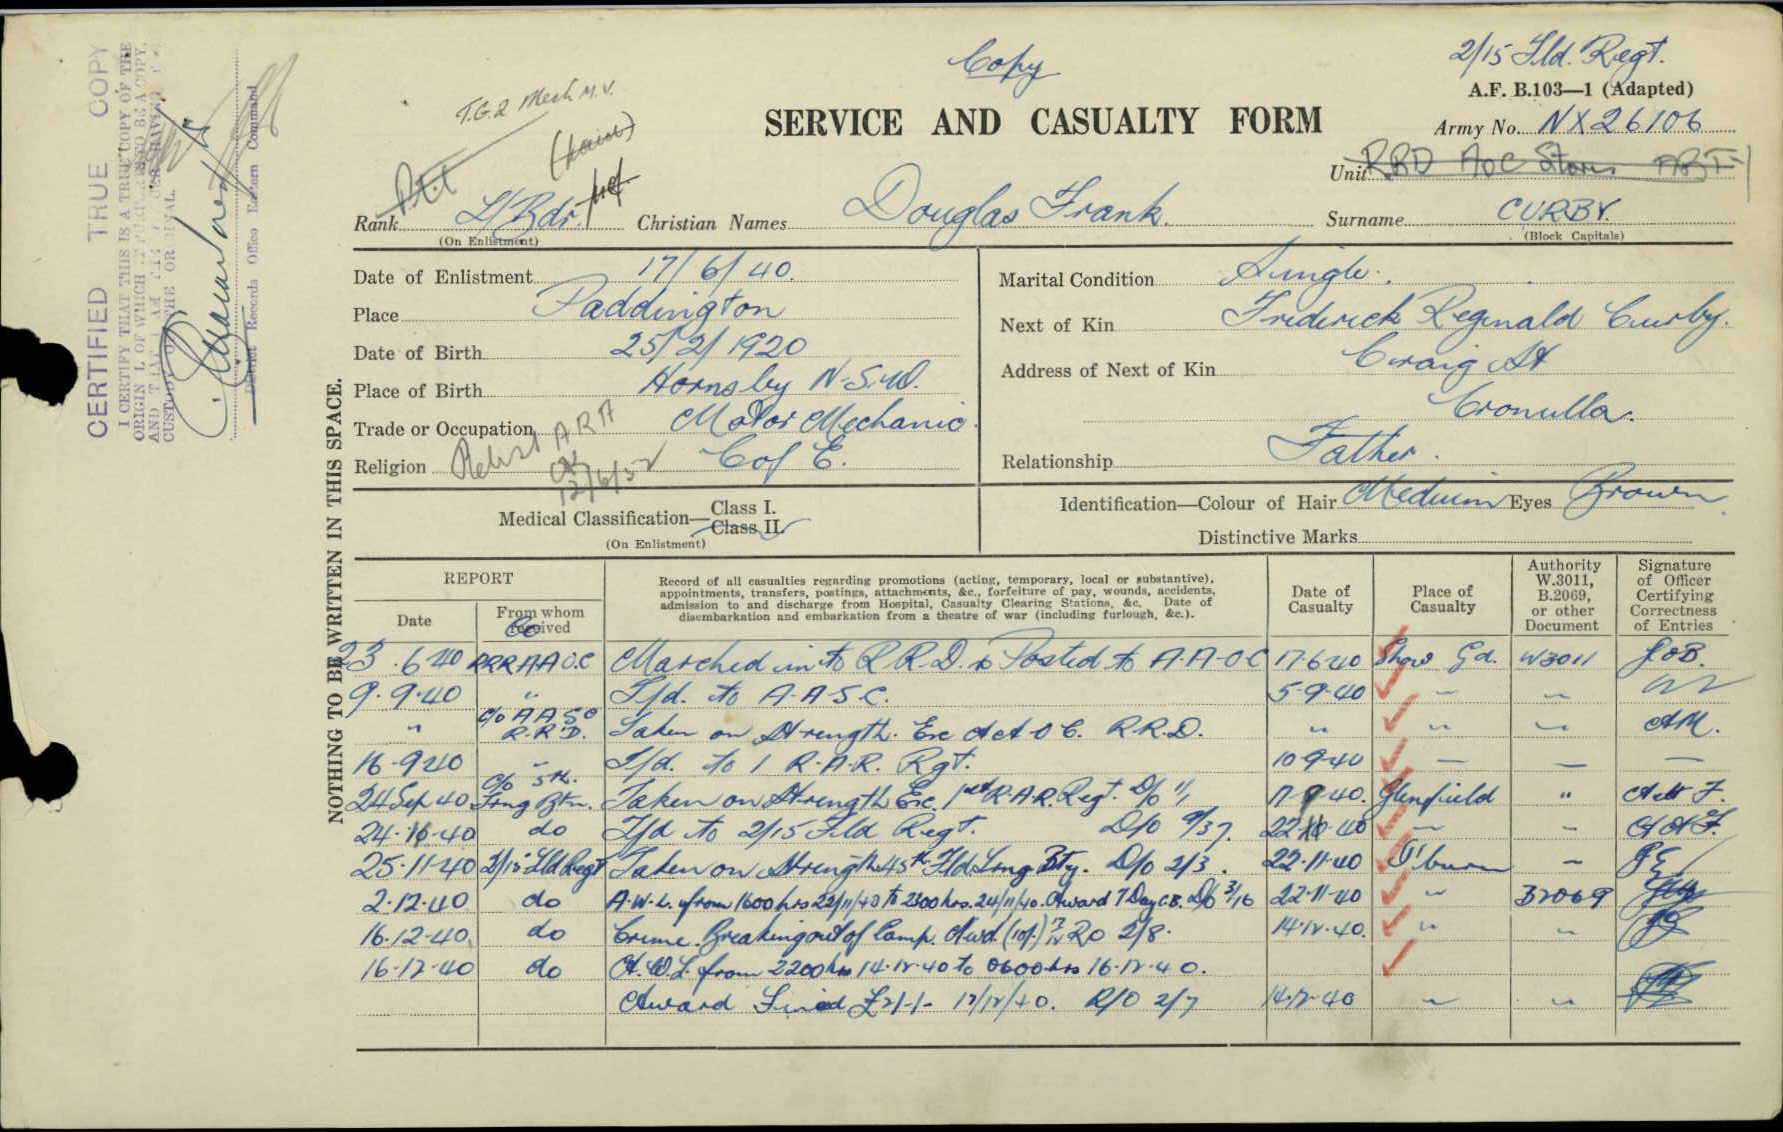 Copy
2/15 Fld. Regt.
A.F. B.103—1 (Adapted)
T.G.2 Mech M.V.
SERVICE AND CASUALTY FORM
Army No. NX26106
Unit RRD AOC Stores
Rank L/Bdr. Christian Names Douglas Frank. Surname CURBY.
(On Enlistment) (Block Capitals)
CERTIFIED TRUE COPY
I CERTIFY THAT THIS IS A TRUE COPY OF THE
District Records Office Eastern Command
NOTHING TO BE WRITTEN IN THIS SPACE.
Date of Enlistment 17/6/40.
Place Paddington
Date of Birth 25/2/1920
Place of Birth Hornsby N.S.W.
Trade or Occupation Motor Mechanic
Religion C of E.
ARA
12/6/52
Marital Condition Single.
Next of Kin Frederick Reginald Curby.
Address of Next of Kin Craig St
Cronulla.
Relationship Father.
Medical Classification— Class I.
Class II.
(On Enlistment)
Identification—Colour of Hair Medium Eyes Brown
Distinctive Marks
REPORT
Date
From whom received
Record of all casualties regarding promotions (acting, temporary, local or substantive),
appointments, transfers, postings, attachments, &c., forfeiture of pay, wounds, accidents,
admission to and discharge from Hospital, Casualty Clearing Stations, &c. Date of
disembarkation and embarkation from a theatre of war (including furlough, &c.).
Date of Casualty
Place of Casualty
Authority W.3011, B.2069, or other Document
Signature of Officer Certifying Correctness of Entries
23.6.40 RRR AAOC Marched in to R.R.D. & Posted to A.A.O.C 17.6.40 Show Gd. W3011 JOB.
9.9.40 " T/d. to A.A.S.C. 5-9-40 " "
" C/o AASC R.R.D. Taken on Strength. Exc AAOC. R.R.D. " " " AM.
16.9.40 " T/d. to 1 R.A.R. Rgt. 10.9.40 — — —
24 Sep 40 C/o 5th. Trng Btn. Taken on Strength Exc. 1st R.A.R. Regt. D/o 1/1 17.9.40. Glenfield "
24.11.40 do T/d to 2/15 Fld Regt. D/o 9/37. 22.11.40 " "
25.11.40 2/15 Fld Regt Taken on Strength 45th Fld Trng Bty. D/o 2/3. 22.11.40 I'burn "
2.12.40 do A.W.L. from 1600 hrs 22/11/40 to 2300 hrs. 24/11/40. Award 7 Day C.B. D/o 3/16 22.11.40 " B2069
16.12.40 do Crime. Breaking out of Camp. RO 2/8. 14.12.40. " "
16.12.40 do A.W.L. from 2200 hrs 14.12.40 to 0600 hrs 16.12.40.
Award Fined £2/-/- 17/12/40. R/O 2/7 14.12.40 " "